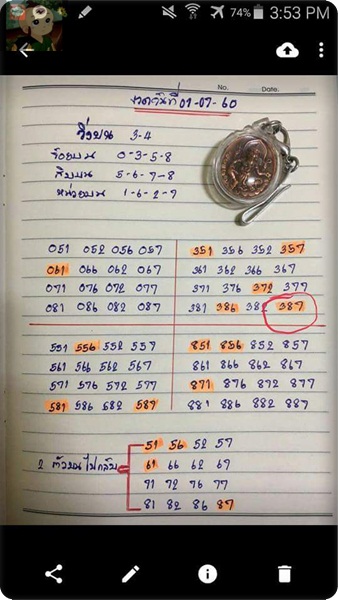 74% 3:53 PM
No. Date.
งวดวันที่ 01-07-60
วิ่งบน 3-4
ร้อยบน 0-3-5-8
สิบบน 5-6-7-8
หน่วยบน 1-6-2-7
051 052 056 057 351 356 352 357
061 066 062 067 361 362 366 367
071 076 072 077 371 376 372 377
081 086 082 087 381 386 382 387
551 556 552 557 851 856 852 857
561 566 562 567 861 866 862 867
571 576 572 577 871 876 872 877
581 586 582 587 881 886 882 887
51 56 52 57
2 ตัวบน ไปกลับ 61 66 62 67
71 72 76 77
81 82 86 87